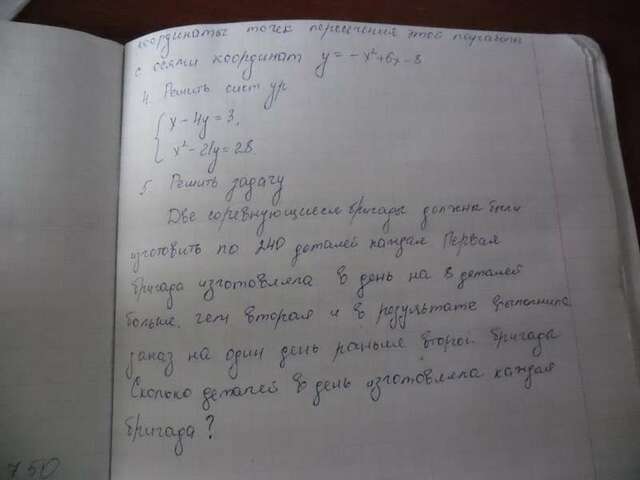 координаты точек пересечения этой параболы
с осями координат y = - x² + 6x - 8
4. Решить сист ур
{ x - 4y = 3,
x² - 21y = 28.
5. Решить задачу
Две соревнующиеся бригады должны были
изготовить по 240 деталей каждая Первая
бригада изготовляла в день на 8 деталей
больше, чем вторая и в результате выполнила
заказ на один день раньше второй бригады
Сколько деталей в день изготовляла каждая
бригада?
750